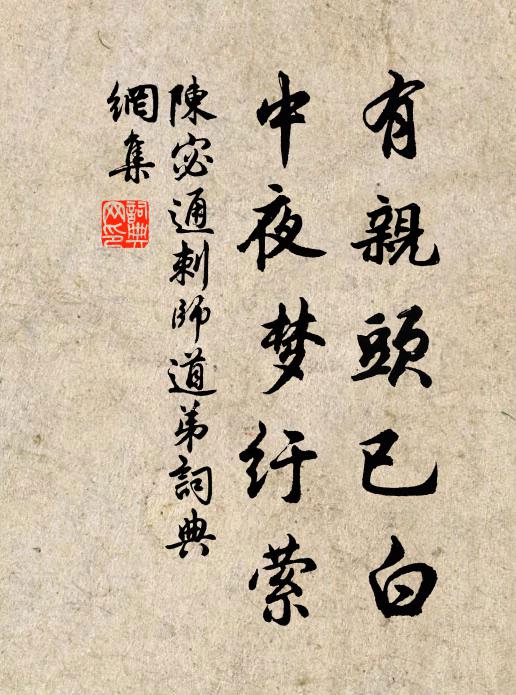 有親頭已白
中夜梦紆萦
陳宓通刺師道弟詞典
網集
詞典
网印